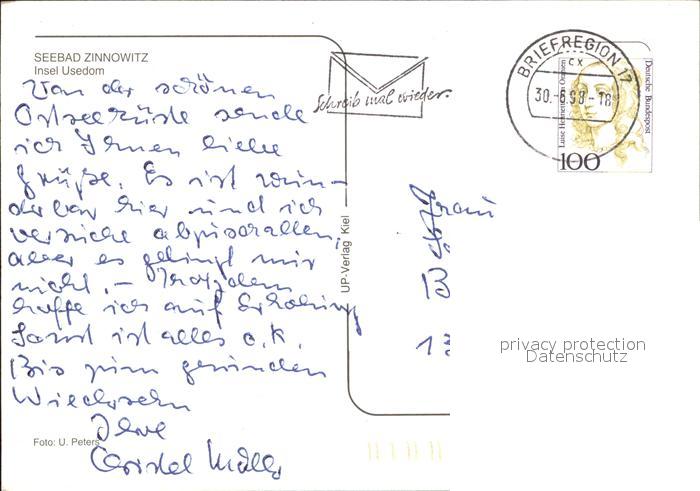 SEEBAD ZINNOWITZ
Insel Usedom
Von der schönen
Ostseeküste sende
ich Ihnen liebe
Grüße. Es ist wun-
derbar hier und ich
versuche abzuschalten,
aber es gelingt mir
nicht. – Trotzdem
hoffe ich auf Erholung
Sonst ist alles o.k.
Bis zum gesunden
Wiedersehn
Ihre
Christel Müller
Foto: U. Peters
UP-Verlag Kiel
Schreib mal wieder.
BRIEFREGION 17
cx
30.-6.98-18
Deutsche Bundespost
Luise Henriette von Oranien
100
Frau
privacy protection
Datenschutz